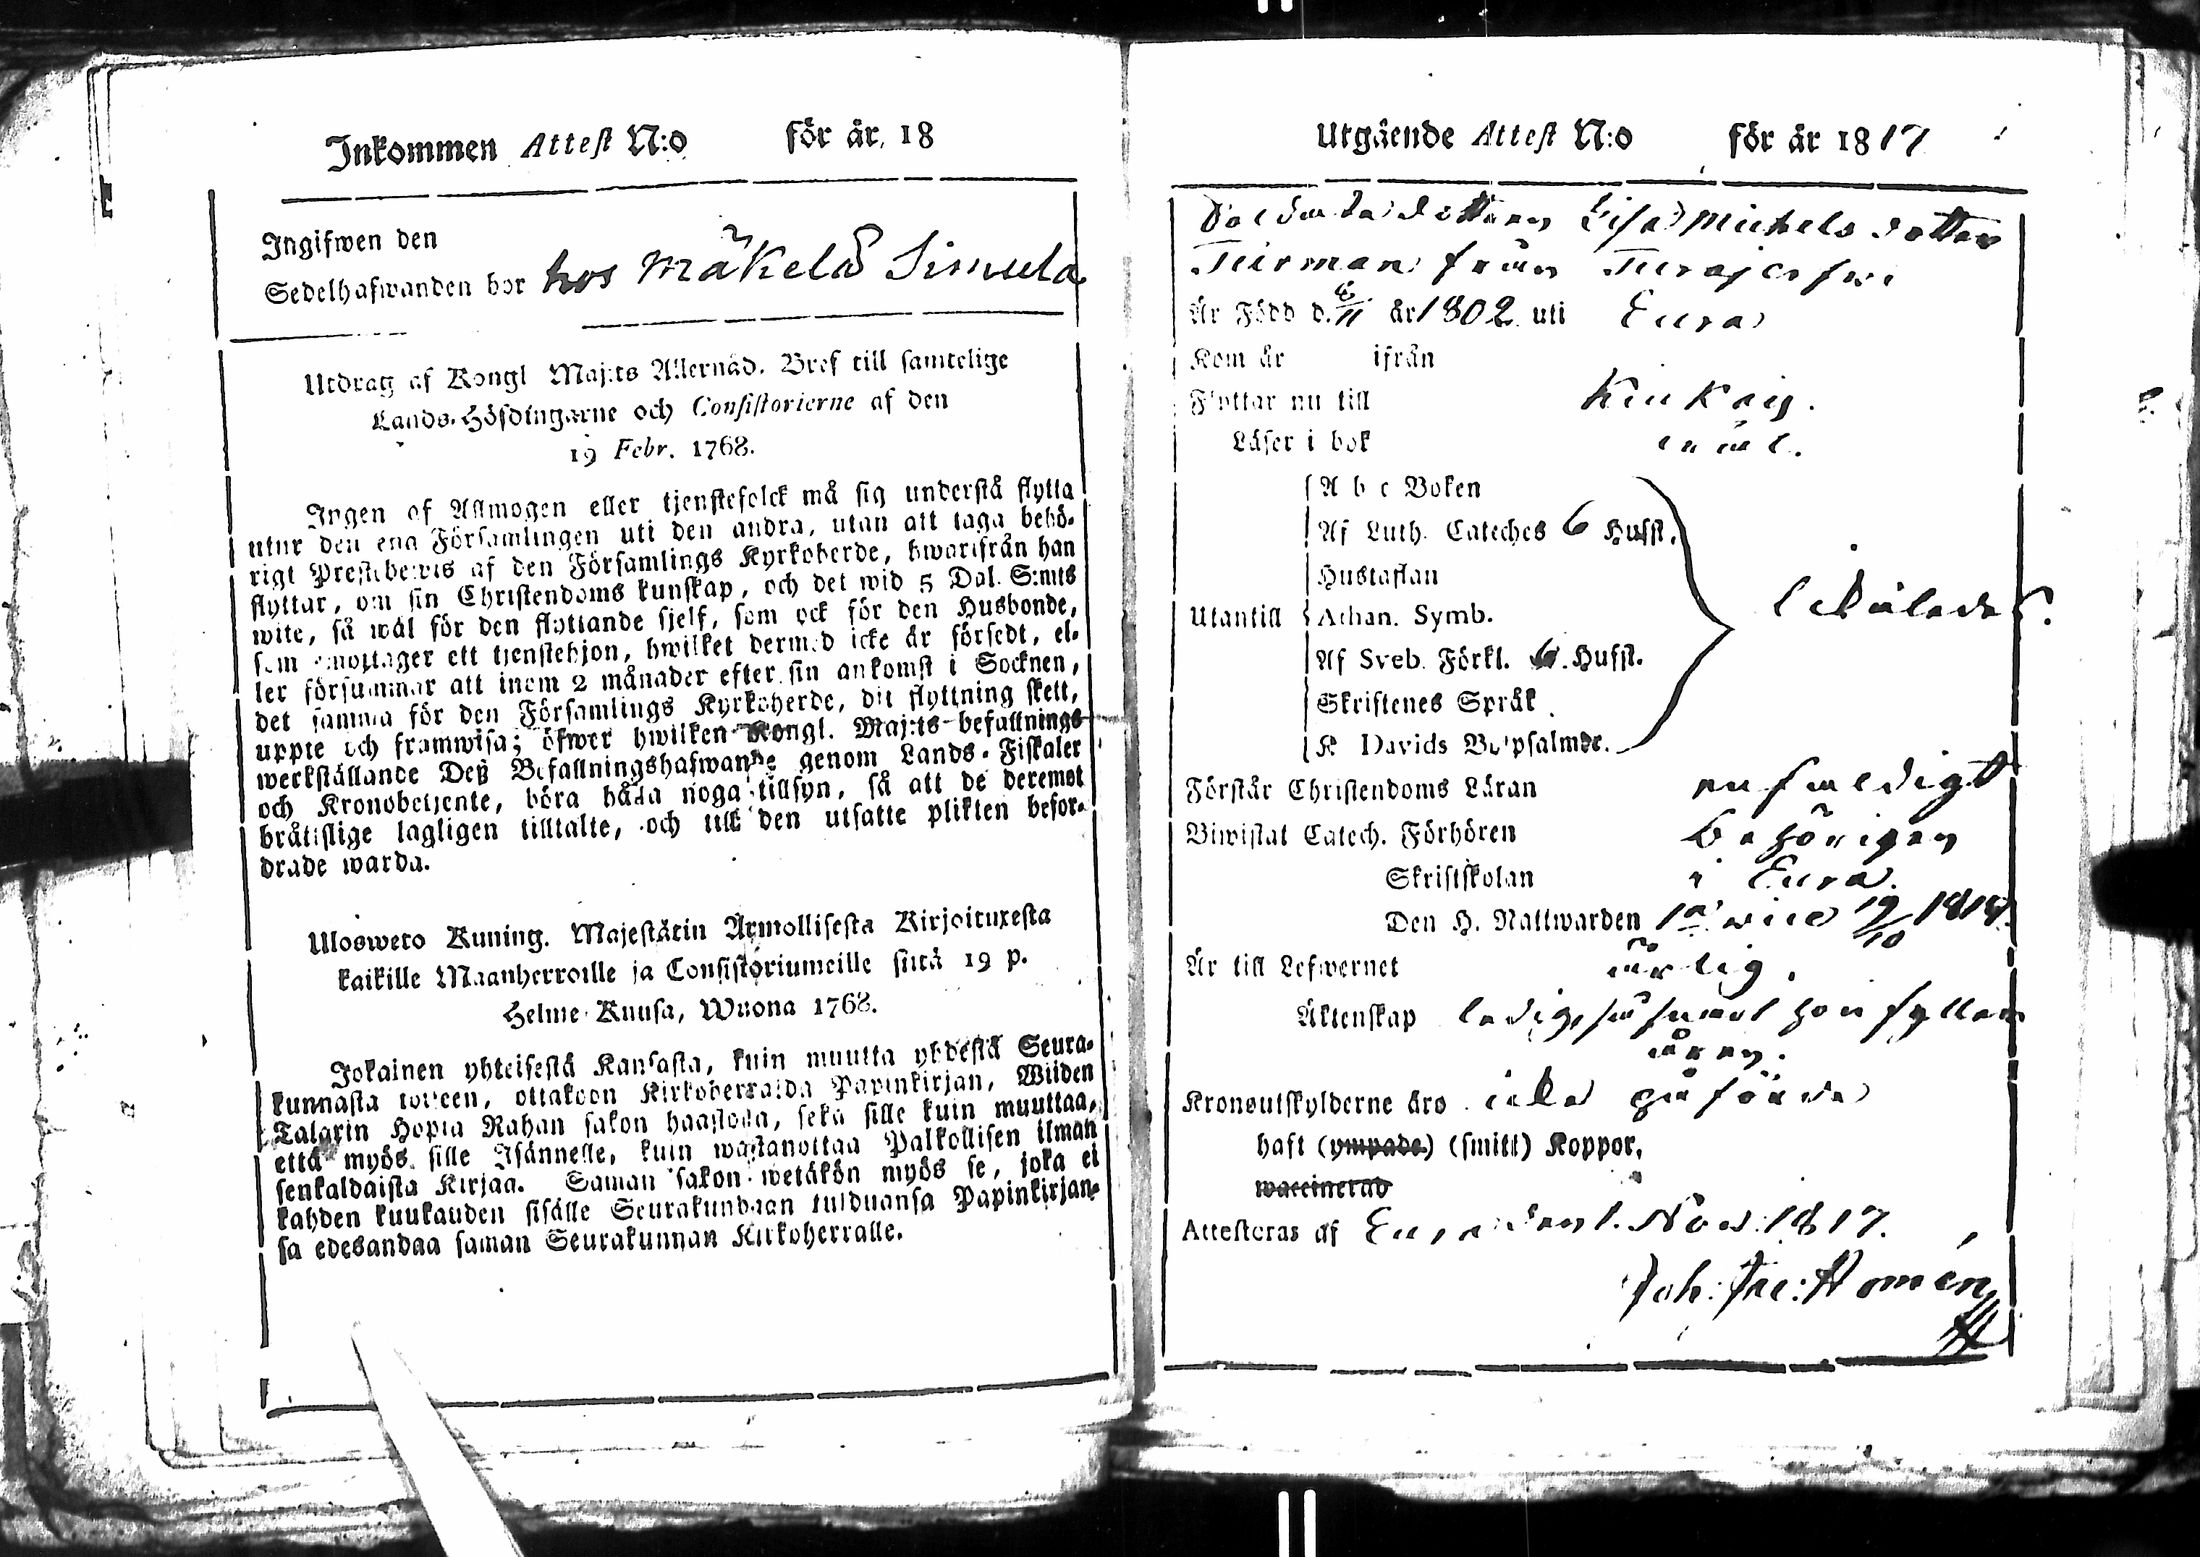 Inkommen Attest N:o för år, 18
Ingifwen den
Sedelhafwanden bor hos Mäkelä Simula
Utdrag af Kongl Maj:ts Allernåd. Bref till samtelige
Lands-Höfdingarne och Consistorierne af den
19 Febr. 1768.
Ingen af Allmogen eller tjenstefolck må sig understå flytta
utur den ena Församlingen uti den andra, utan att taga behö-
rigt Prestebewis af den Församlings Kyrkoherde, hwarifrån han
flyttar, om sin Christendoms kunskap, och det wid 5 Dal. S:mts
wite, så wäl för den flyttande sjelf, som ock för den Husbonde,
som emottager ett tjenstehjon, hwilket dermed icke är försedt, el-
ler försummar att inom 2 månader efter sin ankomst i Socknen,
det samma för den Församlings Kyrkoherde, dit flyttning skett,
uppte och framwisa; öfwer hwilken Kongl. Maj:ts befallnings
werkställande Deß Befallningshafwande genom Lands-Fiskaler
och Kronobetjente, böra håda noga tillsyn, så att de deremot
bråtislige lagligen tilltalte, och till den utsatte plikten befor-
drade warda.
Ulosweto Kuning. Majestätin Armollisesta Kirjoituxesta
kaikille Maanherroille ja Consistoriumeille siitä 19 p.
Helme-Kuusa, Wuona 1768.
Jokainen yhteisestä Kansasta, kuin muutta yhdestä Seura-
kunnasta toiseen, ottakoon Kirkoherralda Papinkirjan, Wiiden
Talarin Hopia Rahan sakon haastolla, sekä sille kuin muuttaa,
että myös sille Isännelle, kuin wastanottaa Palkollisen ilman
senkaldaista Kirjaa. Saman sakon wetäkön myös se, joka ei
kahden kuukauden sisälle Seurakundaan tulduansa Papinkirjan-
sa edesandaa saman Seurakunnan Kirkoherralle.
Utgående Attest N:o för år 1817
Soldatsdottern Lisa Michelsdotter
Tuirman från Turajerfwi
Är Född d. 6/11 år 1802 uti Eura
Kom år ifrån
Flyttar nu till Kiukais.
Läser i bok enkel.
A b c Boken
Af Luth. Cateches 6 Hufst.
Hustaflan
Utantill Athan. Symb. likaledes.
Af Sveb. Förkl. 6. Hufst.
Skriftenes Språk
K Davids Botpsalmer.
Förstår Christendoms Läran enfaldigt
Biwistat Catech. Förhören behörigen
Skriftskolan i Eura.
Den H. Nattwarden 19/10 1817.
Är till Lefwernet ärlig.
Äktenskap ledig, hon fyller
åren.
Kronoutskylderne äro icke påförde
haft (ympade) (smitt) Koppor,
waccinerad
Attesteras af Eura den 1. Nov. 1817.
Joh: Fre: Homén